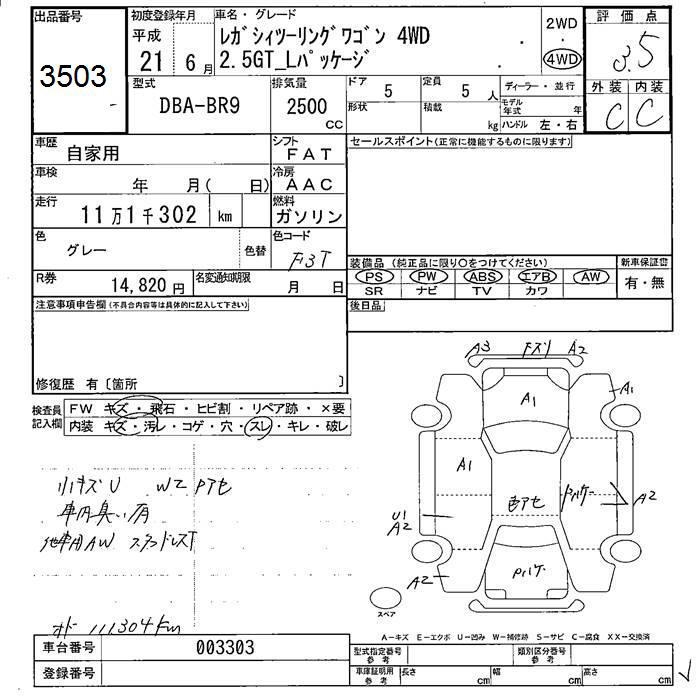 出品番号
3503
初度登録年月
平成
21 6 月
車名・グレード
レガシィツーリングワゴン 4WD
2.5GT_Lパッケージ
2WD
・
4WD
評価点
3.5
外装 内装
C C
型式
DBA-BR9
排気量
2500
cc
ドア
5
定員
5 人
形状
積載
kg
ディーラー・並行
モデル年式 年
ハンドル 左・右
車歴
自家用
シフト
FAT
セールスポイント(正常に機能するものに限ります)
車検
年 月( 日)
冷房
AAC
走行
11万1千302 km
燃料
ガソリン
色
グレー
色替
色コード
F3T
R券
14,820 円
名変通知期限
月 日
装備品 (純正品に限り○をつけてください)
PS PW ABS エアB AW
SR ナビ TV カワ
新車保証書
有・無
後日品
注意事項申告欄(不具合内容等は具体的に記入して下さい)
修復歴 有〔箇所 〕
検査員記入欄
FW キズ・飛石・ヒビ割・リペア跡・×要
内装 キズ・汚レ・コゲ・穴・スレ・キレ・破レ
小キズU W2 Pアセ
車内臭い有
他車用AW
オドー 111304Km
A3 下ズリ A2
A1
A1
A1
色アセ
A2
U1
A2
A2
Pハゲ
スペア
A-キズ E-エクボ U-凹み W-補修跡 S-サビ C-腐食 XX-交換済
車台番号
003303
登録番号
型式指定番号
参考
類別区分番号
参考
車庫証明用
参考
長さ cm
幅 cm
高さ cm